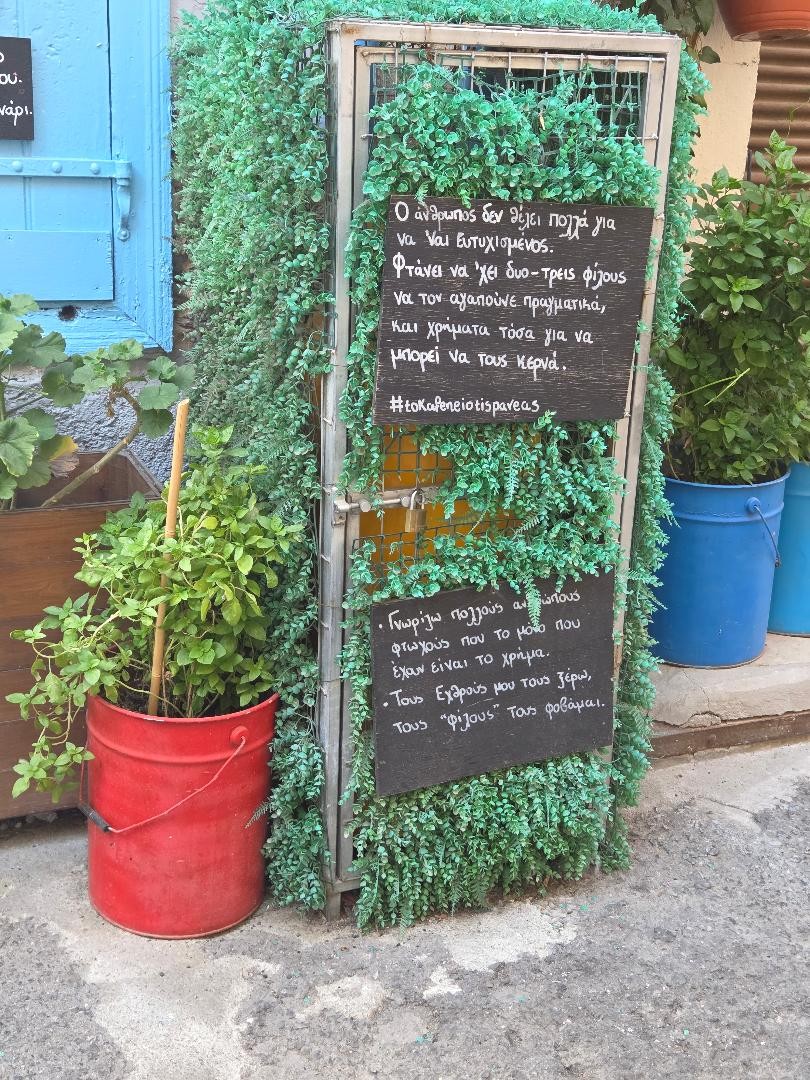 ου.
νάρι.
Ο άνθρωπος δεν θέλει πολλά για
να 'ναι ευτυχισμένος.
Φτάνει να 'χει δυο-τρεις φίλους
να τον αγαπούνε πραγματικά,
και χρήματα τόσα για να
μπορεί να τους κερνά.
#toKafeneiotispareas
• Γνωρίζω πολλούς ανθρώπους
φτωχούς που το μόνο που
έχαν είναι το χρήμα.
• Τους Εχθρούς μου τους ξέρω,
τους "φίλους" τους φοβάμαι.